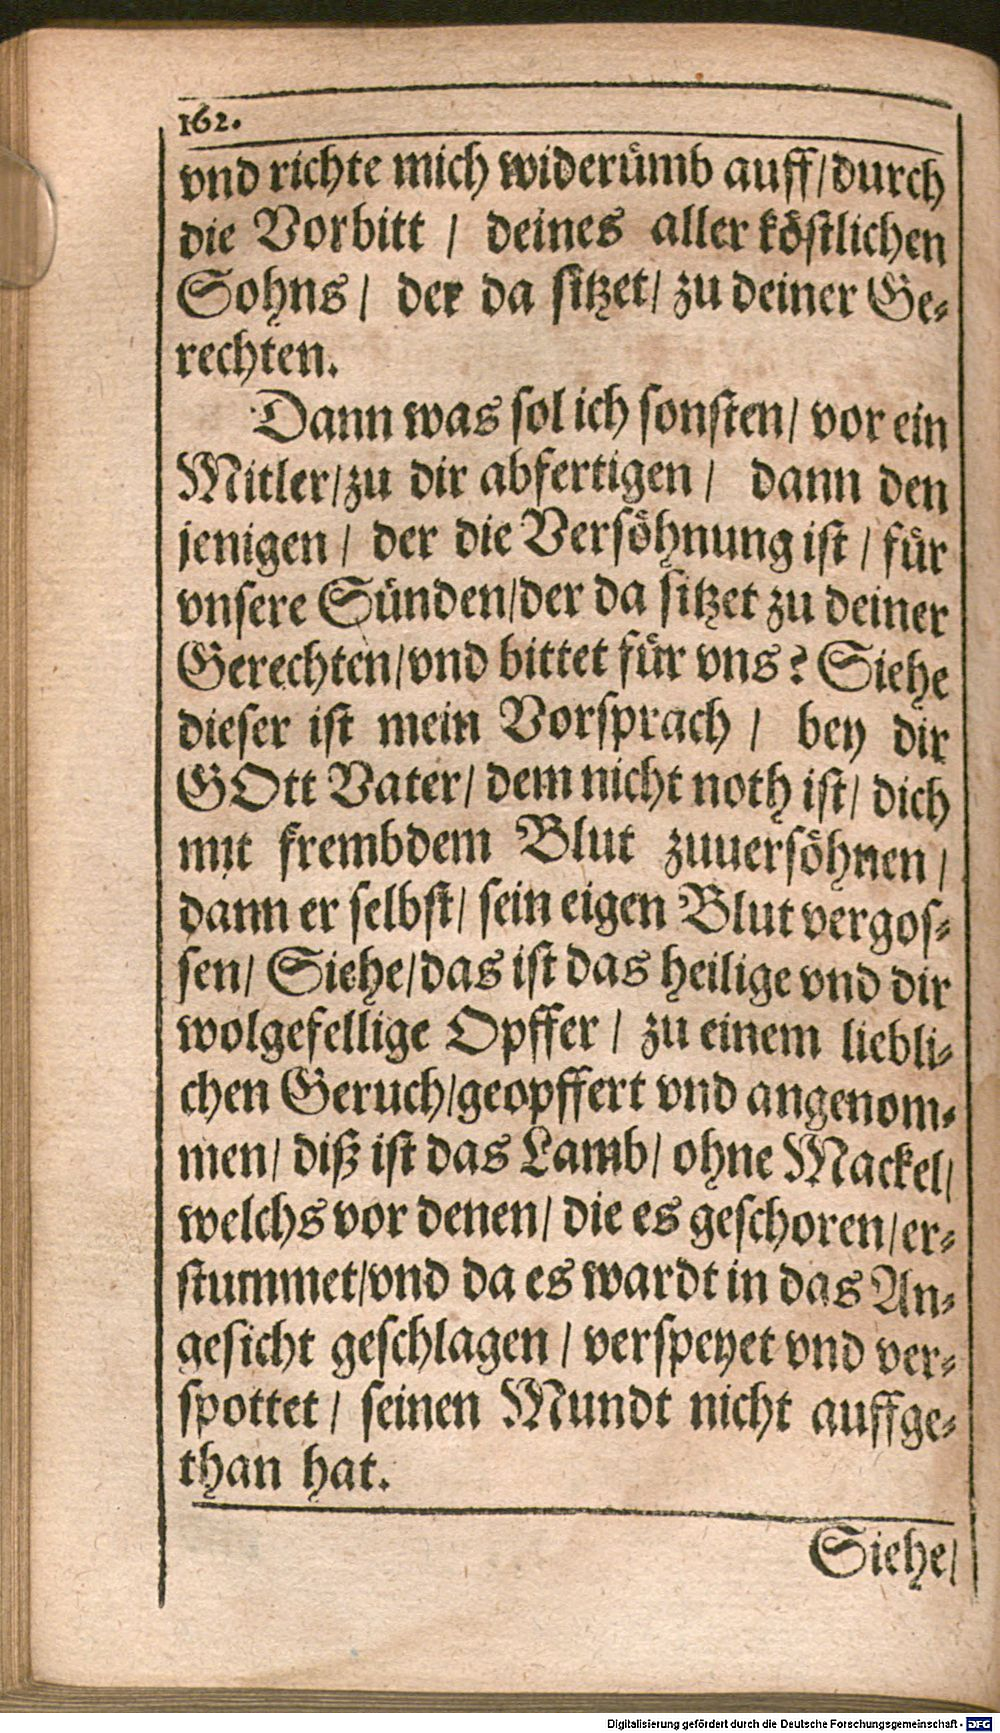 162.
vnd richte mich widerümb auff/durch
die Vorbitt / deines aller köstlichen
Sohns / der da sitzet/ zu deiner Ge-
rechten.
Dann was sol ich sonsten/ vor ein
Mitler/zu dir abfertigen / dann den
jenigen / der die Versöhnung ist / für
vnsere Sünden/der da sitzet zu deiner
Gerechten/vnd bittet für vns? Siehe
dieser ist mein Vorsprach / bey dir
GOtt Vater/ dem nicht noth ist/ dich
mit frembdem Blut zuuersöhnen /
dann er selbst/ sein eigen Blut vergos-
sen/ Siehe/das ist das heilige vnd dir
wolgefellige Opffer / zu einem liebli-
chen Geruch/geopffert vnd angenom-
men/ diß ist das Lamb/ ohne Mackel/
welchs vor denen/ die es geschoren/er-
stummet/vnd da es wardt in das An-
gesicht geschlagen / verspeyet vnd ver-
spottet / seinen Mundt nicht auffge-
than hat.
Siehe/
Digitalisierung gefördert durch die Deutsche Forschungsgemeinschaft - DFG